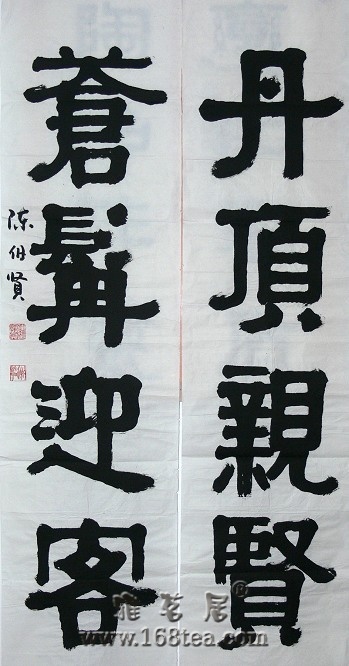 丹頂親賢
蒼髯迎客
陈伯贤
雅茗居®
www.168tea.com